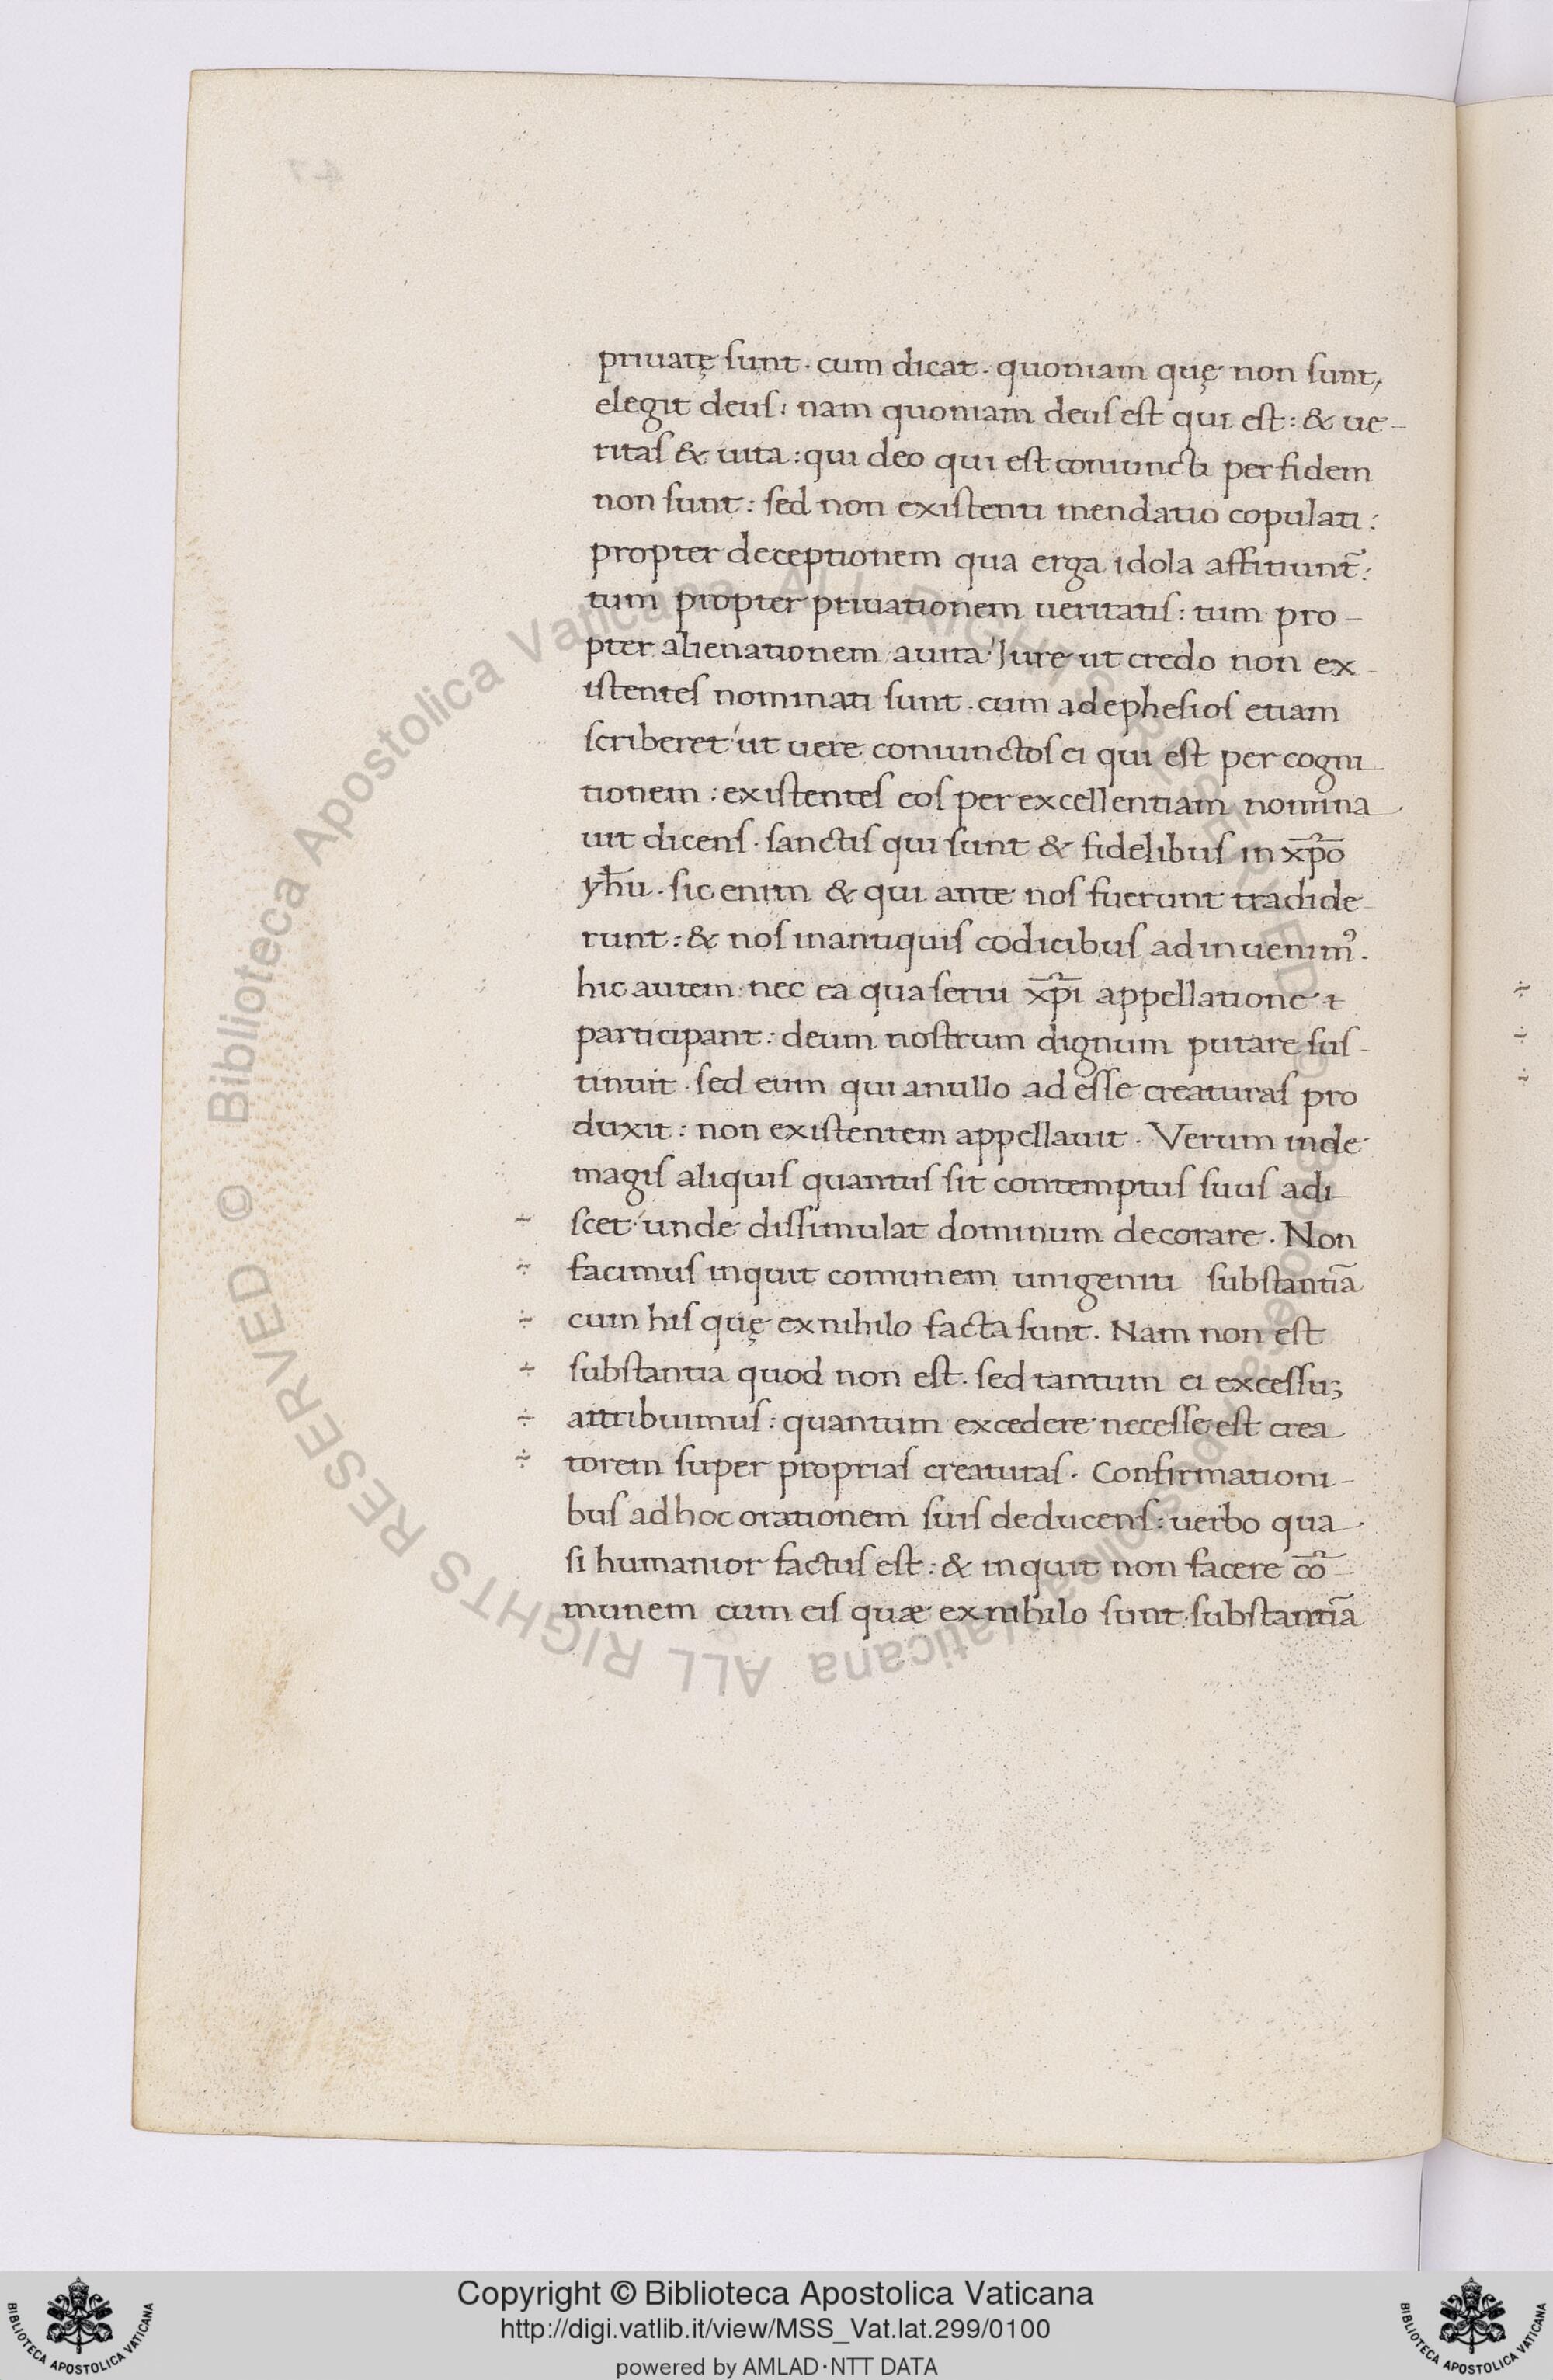 priuatę sunt. cum dicat. quoniam quę non sunt,
elegit deus: nam quoniam deus est qui est: & ue-
ritas & uita: qui deo qui est coniuncti per fidem
non sunt: sed non existenti mendatio copulati:
propter deceptionem qua erga idola affitiunt̃:
tum propter priuationem ueritatis: tum pro-
pter alienationem auita. Jure ut credo non ex-
istentes nominati sunt. cum ad ephesios etiam
scriberet ut uere coniunctos ei qui est per cogni
tionem: existentes eos per excellentiam nomina
uit dicens. sanctis qui sunt & fidelibus in xp̃o
yh̃u. sic enim & qui ante nos fuerunt tradide
runt: & nos inantiquis codicibus adinuenimꝰ.
hic autem nec ea qua serui xp̃i appellatione
participant: deum nostrum dignum putare sus-
tinuit. sed eum qui anullo ad esse creaturas pro
duxit: non existentem appellauit. Verum inde
magis aliquis quantus sit contemptus suus adi
scet unde dissimulat dominum decorare. Non
facimus inquit comunem unigeniti substantiã
cum his quę exnihilo facta sunt. Nam non est
substantia quod non est. sed tantum ei excessu;
attribuimus: quantum excedere necesse est crea
torem super proprias creaturas. Confirmationi-
bus adhoc orationem suis deducens: uerbo qua
si humanior factus est: & inquit non facere cõ
munem cum eis quæ exnihilo sunt: substantiã
Copyright © Biblioteca Apostolica Vaticana
http://digi.vatlib.it/view/MSS_Vat.lat.299/0100
powered by AMLAD·NTT DATA
BIBLIOTECA APOSTOLICA VATICANA
BIBLIOTECA APOSTOLICA VATICANA